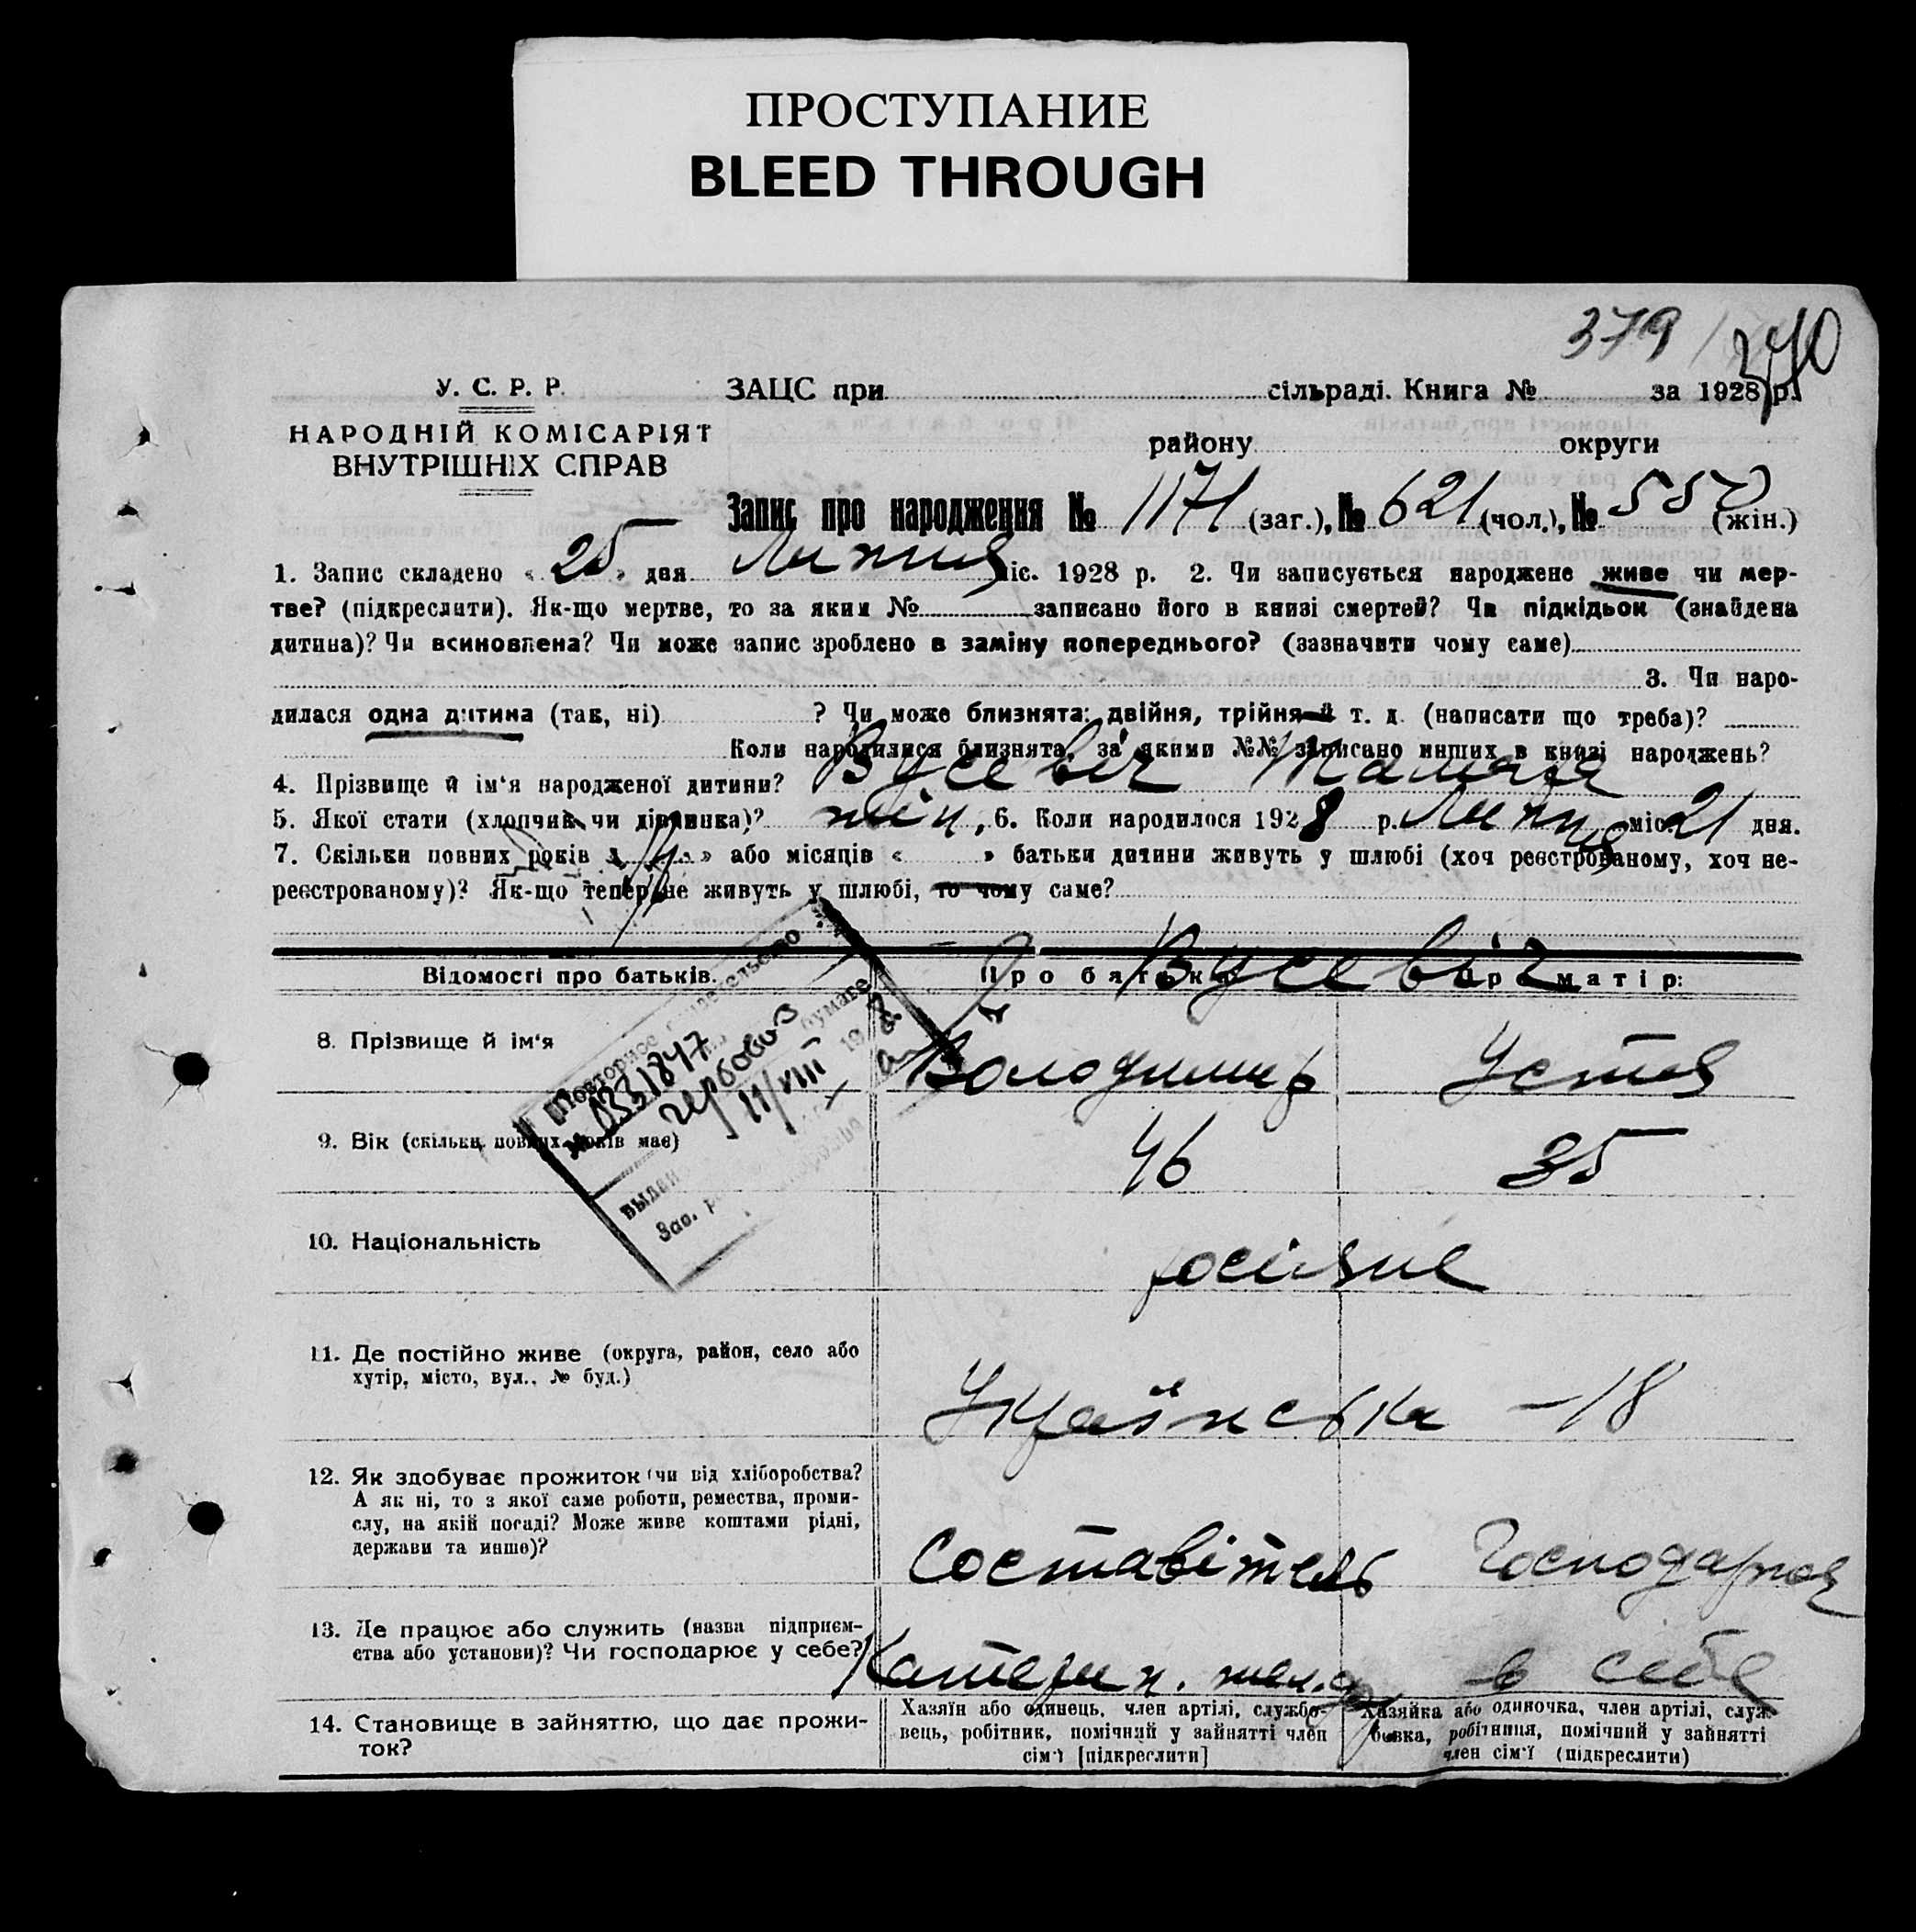 ПРОСТУПАНИЕ
BLEED THROUGH
379
370
У. С. Р. Р.
НАРОДНІЙ КОМІСАРІЯТ
ВНУТРІШНІХ СПРАВ
ЗАЦС при сільраді. Книга № за 1928 р.
району округи
Запис про народження № 1171 (заг.), № 621 (чол.), № 550 (жін.)
1. Запис складено « 25 » дня Липня міс. 1928 р. 2. Чи записується народжене живе чи мер-
тве? (підкреслити). Як-що мертве, то за яким № записано його в книзі смертей? Чи підкідьок (знайдена
дитина)? Чи всиновлена? Чи може запис зроблено в заміну попереднього? (зазначити чому саме)
3. Чи наро-
дилася одна дитина (так, ні) ? Чи може близнята: двійня, трійня й т. д. (написати що треба)?
Коли народилися близнята, за якими №№ записано инших в книзі народжень?
4. Прізвище й ім‘я народженої дитини? Вусевіч Тамара
5. Якої стати (хлопчик чи дівчинка)? жін, 6. Коли народилося 1928 р. Липня міс. 21 дня.
7. Скільки повних років « » або місяців « » батьки дитини живуть у шлюбі (хоч реєстрованому, хоч не-
реєстрованому)? Як-що тепер не живуть у шлюбі, то чому саме?
Відомості про батьків. Про батька: Про матір:
Вусевіч
8. Прізвище й ім‘я Володимир Устя
Повторное свидетельство
№ 0331847
гербовой бумаге
11/VIII 19
выдан
Зав.
9. Вік (скільки повних років має) 46 35
10. Національність росіяне
11. Де постійно живе (округа, район, село або
хутір, місто, вул., № буд.)
Українська -18
12. Як здобуває прожиток (чи від хліборобства?
А як ні, то з якої саме роботи, ремества, проми-
слу, на якій посаді? Може живе коштами рідні,
держави та инше)?
Составітель Господарноя
13. Де працює або служить (назва підприєм-
ства або установи)? Чи господарює у себе?
Катерин. жел.д в себе
14. Становище в зайняттю, що дає прожи-
ток?
Хазяїн або одинець, член артілі, службо-
вець, робітник, помічний у зайнятті член
сім‘ї [підкреслити]
Хазяйка або одиночка, член артілі, служ-
бовка, робітниця, помічний у зайнятті
член сім‘ї (підкреслити)